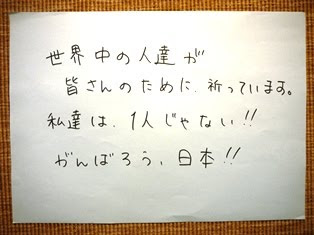 世界中の人達が
皆さんのために、祈っています。
私達は、1人じゃない!!
がんばろう、日本!!